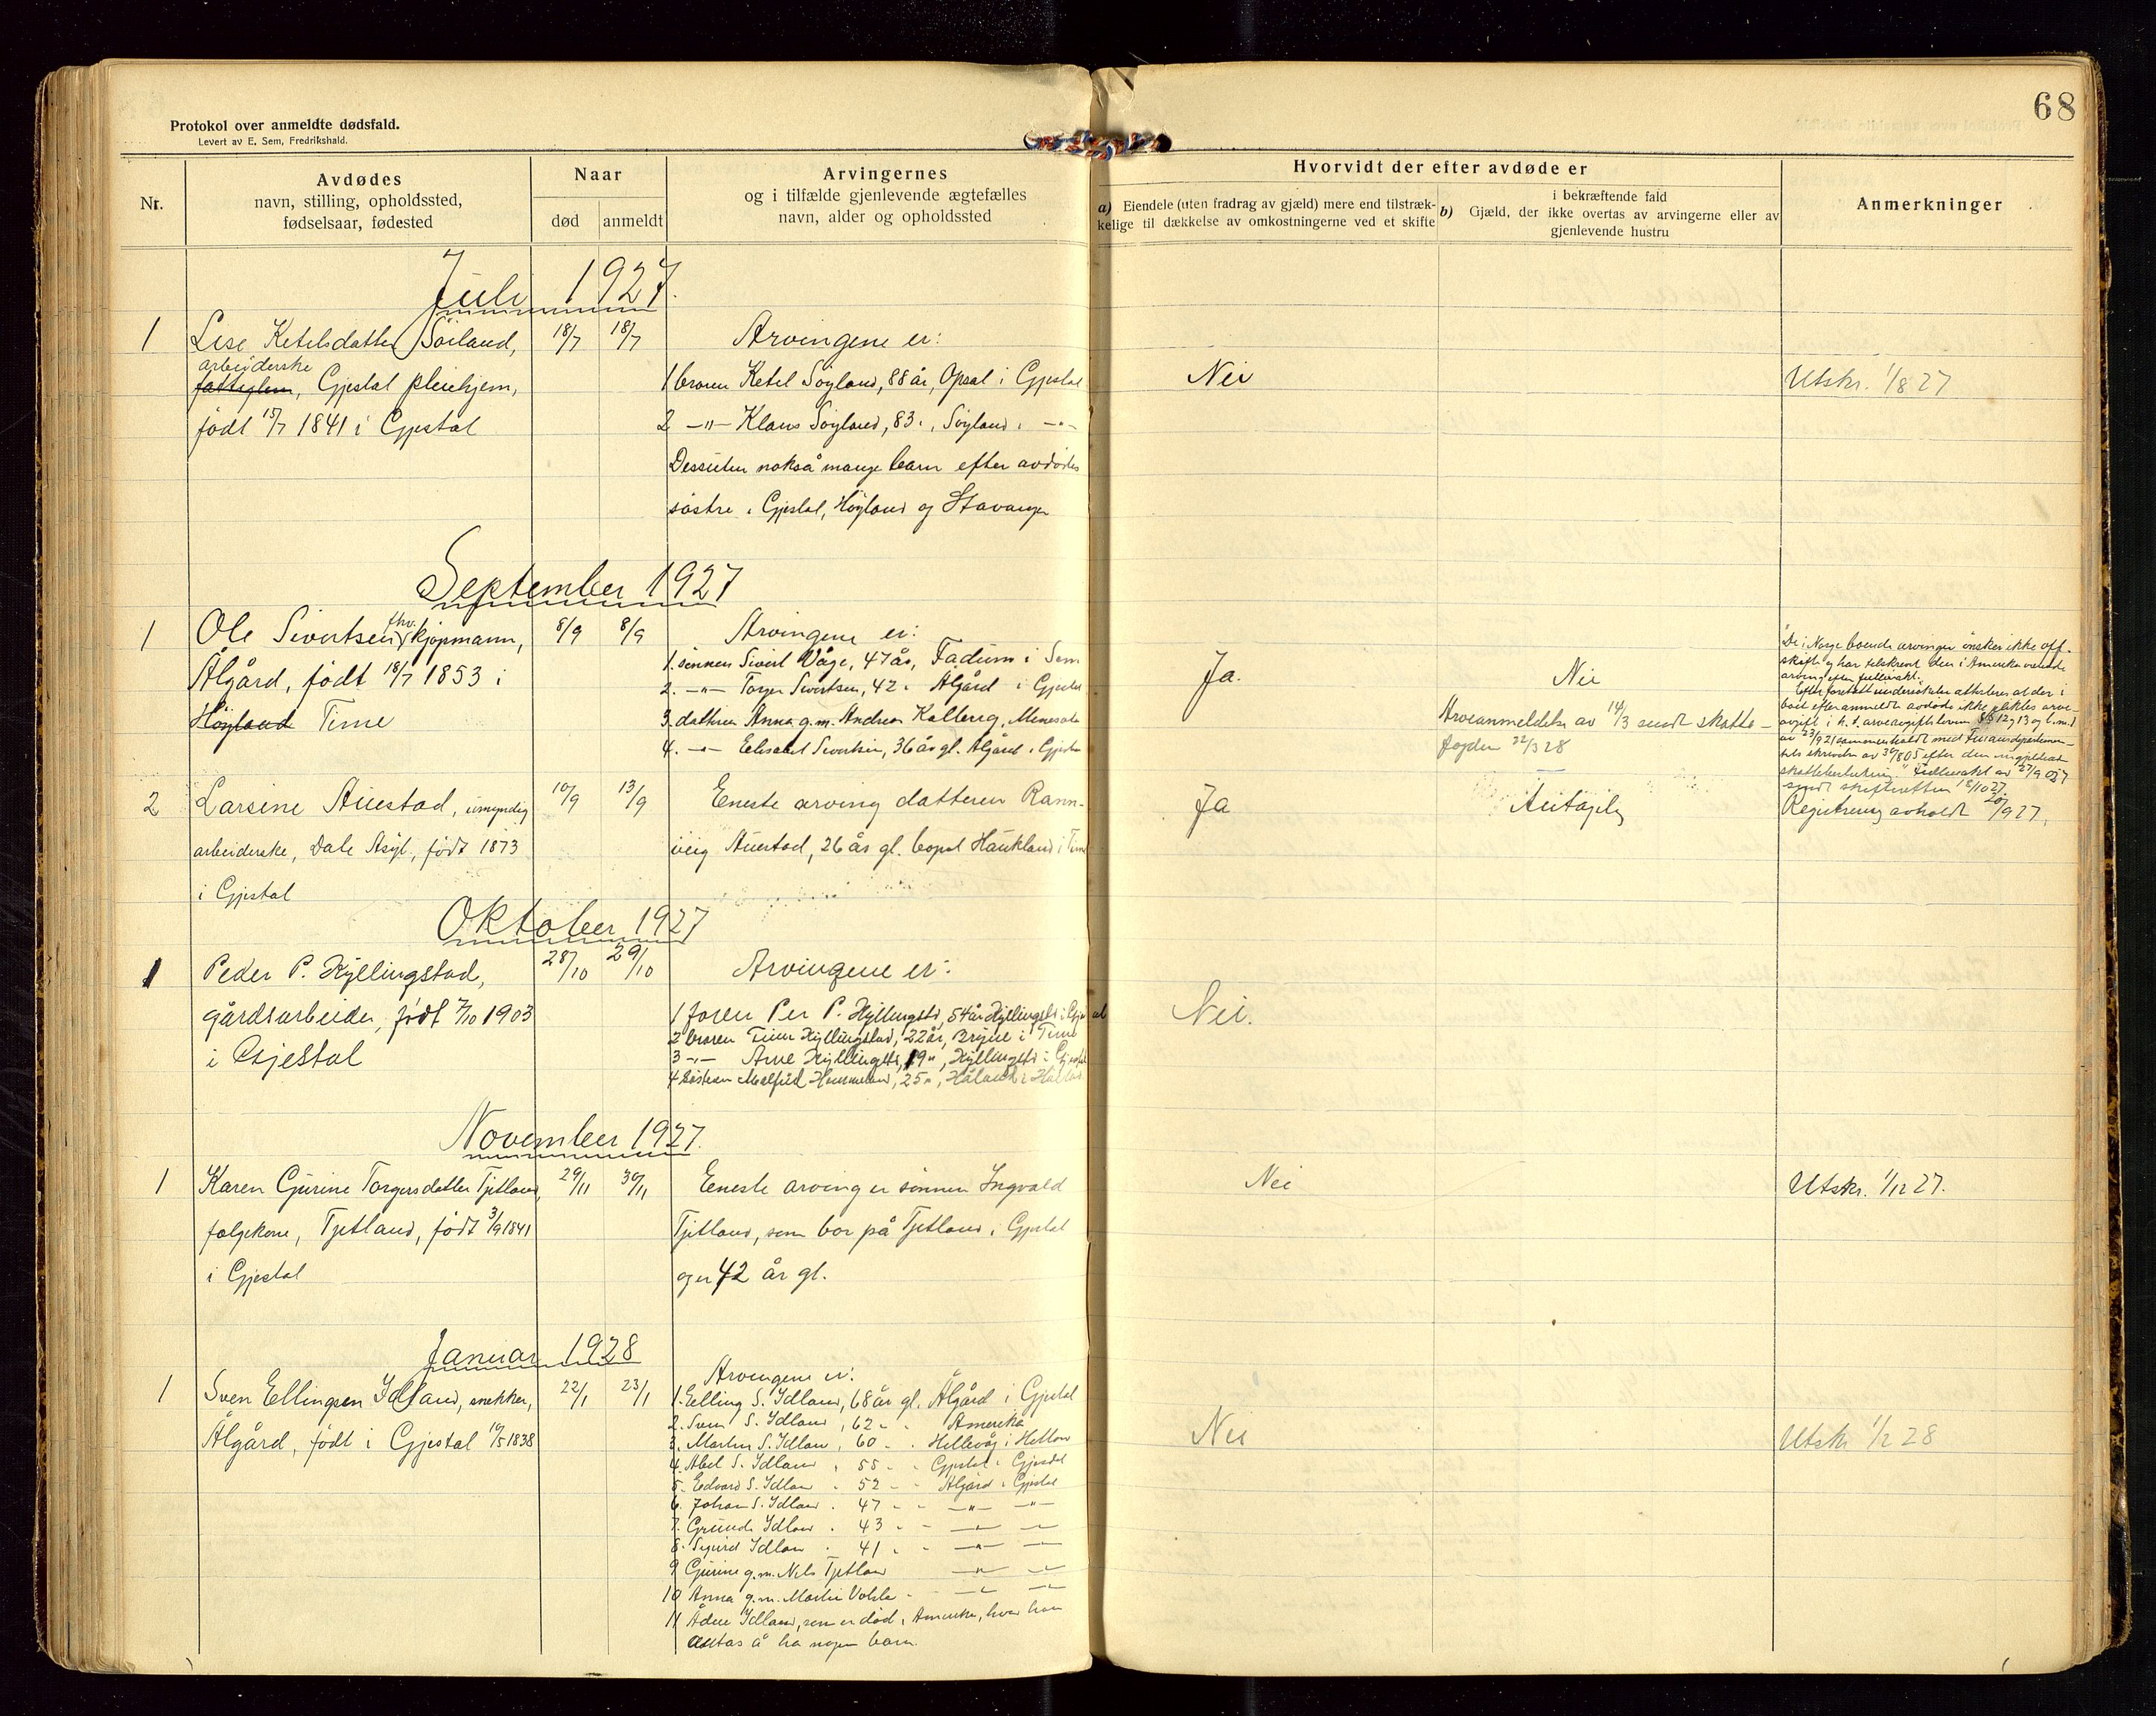 68
Protokol over anmeldte dødsfald.
Levert av E. Sem, Fredrikshald.
Nr.
Avdødes
navn, stilling, opholdssted,
fødselsaar, fødested
Naar
død anmeldt
Arvingernes
og i tilfælde gjenlevende ægtefælles
navn, alder og opholdssted
Hvorvidt der efter avdøde er
a) Eiendele (uten fradrag av gjæld) mere end tilstræk-
kelige til dækkelse av omkostningerne ved et skifte
b) i bekræftende fald
Gjæld, der ikke overtas av arvingerne eller av
gjenlevende hustru
Anmerkninger
Juli 1927.
1 Lise Ketelsdatter Söiland, 18/7 18/7
arbeiderske
Gjestal pleiehjem,
født 15/7 1841 i Gjestal
Arvingene er:
1 broren Ketel Söyland, 88 år, Opsal i Gjestal
2 -"- Klaus Söyland, 83 " , Söyland i -"-
Dessuten nokså mange barn efter avdødes
søstre i Gjestal, Höyland og Stavanger
Nei
Utskr. 1/8 27
September 1927
1 Ole Sivertsen fhv. kjøpmann, 8/9 8/9
Ålgård, født 18/7 1853 i
Höyland Time
Arvingene er:
1. sönnen Sivert Våge, 47 år, Fadum i Sem
2. -"- Torger Sivertsen, 42 " Ålgård i Gjestal
3. datteren Anna g.m. Andreas Kalberg, Minesota
4. -"- Elisabet Sivertsen, 36 år gl. Ålgård i Gjestal
Ja.
Nei
Arveanmeldelse av 14/3 sendt skatte-
fogden 22/3 28
"De i Norge boende arvinger ønsker ikke off.
skifte og har tilskrevet den i Amerika værende
arving efter fullmakt.
Efter foretatt undersökelse attesteres at der i
boet efter anmeldt avdøde ikke pliktes arve-
avgift i h. t. arveavgiftsloven §§ 12 og 13 og l. m.l
av 23/9 21 sammenholdt med Finansdepartemen-
tets skrivelse av 30/8 05 efter den
skattebestemning." Fullmakt av 27/9 027
sendt skifteretten 18/10 27.
2 Larsine Auestad, umyndig 10/9 13/9
arbeiderske, Dale Asyl, født 1873
i Gjestal
Eneste arving datteren Rann-
veig Auestad, 26 år gl. bopel Haukland i Time
Ja
Antagelig
Registrering avholdt 20/9 27.
Oktober 1927
1 Peder P. Kyllingstad, 28/10 29/10
gårdsarbeider, født 7/10 1903
i Gjestal
Arvingene er:
1 faren Per P. Kyllingstd, 54 år Kyllingstd i Gjestal
2 broren Timer Kyllingstad, 22 år, Bryne i Time
3 -"- Arne Kyllingstd, 19 ", Kyllingstd i Gjestal
4 Søsteren Malfrid Hommeland, 25 ", Håland i Håland
Nei.
November 1927.
1 Karen Gurine Torgersdatter Tjetland, 29/11 30/11
folgekone, Tjetland, født 3/9 1841
i Gjestal
Eneste arving er sönnen Ingvald
Tjetland, som bor på Tjetland i Gjestal
og er 42 år gl.
Nei
Utskr. 1/12 27.
Januar 1928
1 Sven Ellingsen Idland, snekker, 22/1 23/1
Ålgård, født i Gjestal 10/5 1838
Arvingene er:
1. Elling S. Idland, 68 år gl. Ålgård i Gjestal
2. Sven S. Idland, 62 " " Amerika
3. Martin S. Idland, 60 " " Hellevåg i Hetland
4. Abel S. Idland, 55 " " Gjestal i Gjesdal
5. Edvard S. Idland " 52 " " Ålgård i Gjestal
6. Johan S. Idland " 47 " " -"- -"-
7. Gunde Idland " 43 " " -"- -"-
8. Sigurd Idland " 41 " " -"- -"-
9 Gurine g.m. Nils Tjetland -"- -"-
10 Anna g.m. Martin -"- -"-
11 Idland, som er død i Amerika, hvor han
antas å ha nogen barn.
Nei
Utskr 1/2 28